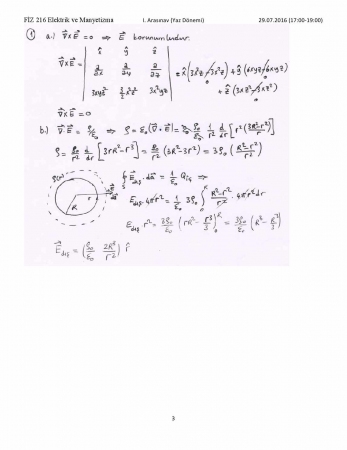 FİZ 216 Elektrik ve Manyetizma I. Arasınav (Yaz Dönemi) 29.07.2016 (17:00-19:00)
① a.) ∇×E = 0 ⇒ E korunumludur.
∇×E = | x̂ ŷ ẑ |
| ∂/∂x ∂/∂y ∂/∂z | = x̂ (3x²z - 3x²z) + ŷ (6xyz - 6xyz)
0 0
+ ẑ (3xz² - 3xz²)
0
| 3xyz² 3/2 x²z² 3x²yz |
∇×E = 0
b.) ∇·E = ρ/ε₀ ⇒ ρ = ε₀(∇·E) = ε₀ ρ₀/ε₀ 1/r² d/dr [r²(3R²-r²)]
ρ = ρ₀/r² d/dr [3rR² - r³] = ρ₀/r² (3R² - 3r²) = 3ρ₀ (R²-r²/r²)
ρ(r)
R
r
∮ E_dış · da = 1/ε₀ Q_iç ⇒
S
E_dış 4πr² = 1/ε₀ 3ρ₀ ∫₀ᴿ R²-r²/r² · 4πr² dr
E_dış r² = 3ρ₀/ε₀ (rR² - r³/3)₀ᴿ = 3ρ₀/ε₀ (R³ - R³/3)
E_dış = (ρ₀/ε₀ 2R³/r²) r̂
3